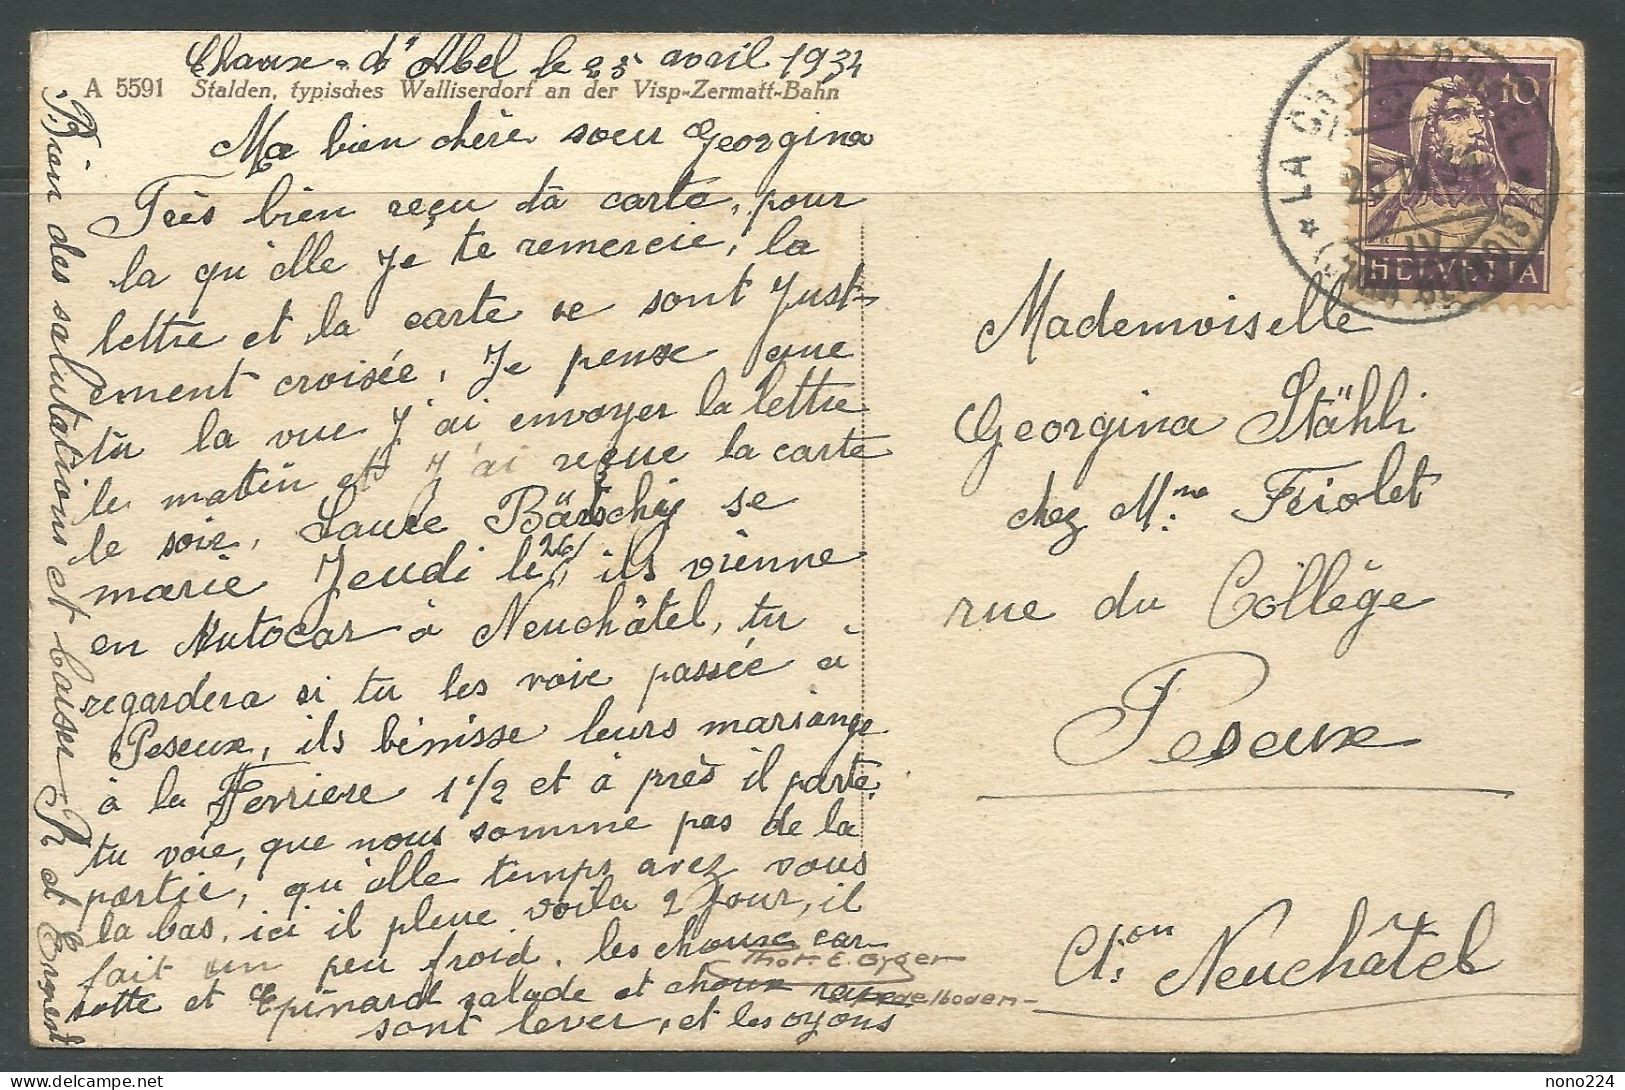 Chaux-d'Abel le 25 avril 1934
A 5591 Stalden, typisches Walliserdorf an der Visp-Zermatt-Bahn
Ma bien chère soeur Georgina
Très bien reçu ta carte, pour
la qu'elle Je te remercie, la
lettre et la carte se sont Just-
ement croisée, Je pense que
tu la vue J'ai envoyer la lettre
le matin et J'ai reçue la carte
le soir, Laure Bärtschy se
marie Jeudi le 26 ils vienne
en Autocar à Neuchâtel, tu
regardera si tu les voie passée a
Peseux, ils bénisse leurs mariange
à la Ferriere 1 1/2 et à près il parte,
tu voie, que nous somme pas de la
partie, qu'elle temps avez vous
la bas, ici il pleue voila 2 Jour, il
fait un peu froid, les choux car
rotte et Epinard salade et choux rave
sont lever, et les oyons
Bien des salutations et baiser R et Ernest
Phot. E. Gyger
Adelboden
LA CHAUX-D'ABEL
25.IV.34
(JURA BERNOIS)
10
HELVETIA
Mademoiselle
Georgina Stähli
chez Mme Feriolet
rue du Collège
Peseux
Ct:on Neuchâtel
nono224
delcampe.net